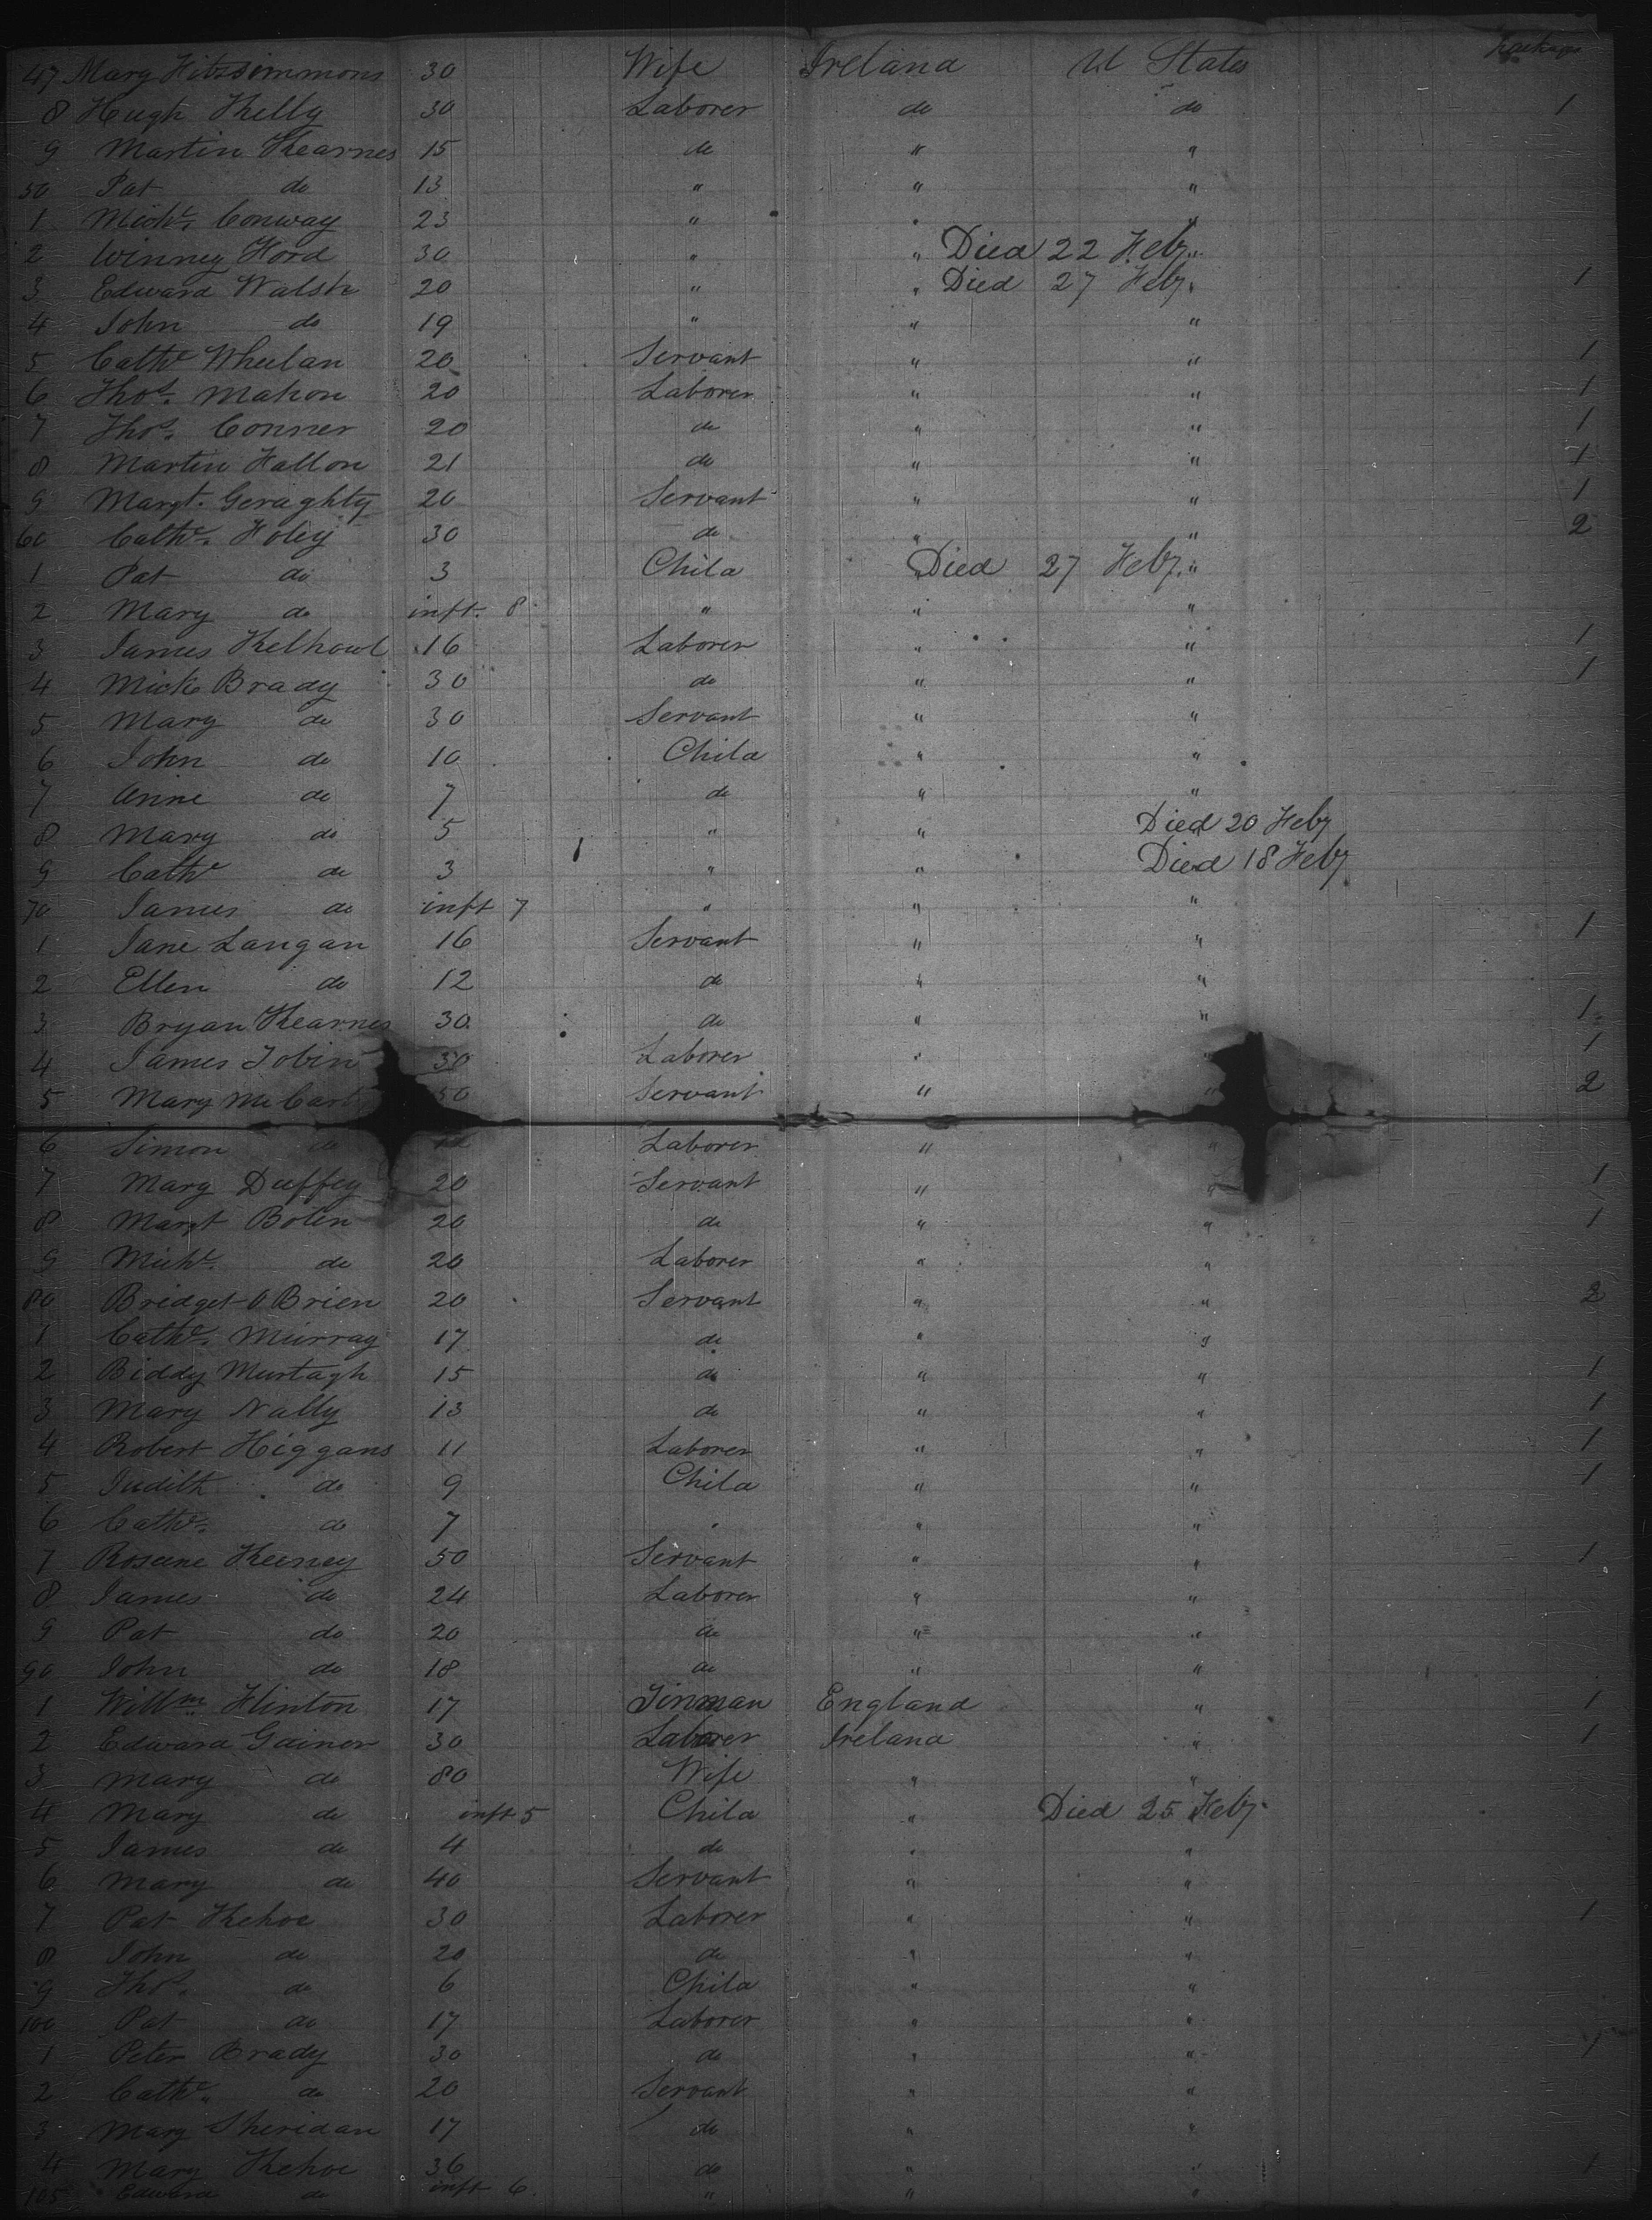 Package
47 Mary Fitzsimmons 30 Wife Ireland U States
8 Hugh Kelly 30 Laborer do do 1
9 Martin Kearnes 15 do " "
50 Pat do 13 " " "
1 Michl. Conway 23 " " "
2 Winney Ford 30 " " Died 22 Feby "
3 Edward Walsh 20 " " Died 27 Feby " 1
4 John do 19 " " "
5 Cathe Whelan 20 Servant " " 1
6 Thos. Mahon 20 Laborer " " 1
7 Thos. Conner 20 do " " 1
8 Martin Fallon 21 do " " 1
9 Margt. Geraghty 20 Servant " " 1
60 Cathe. Foley 30 do " " 2
1 Pat do 3 Child " Died 27 Feby. "
2 Mary do inft. 8 " " "
3 James Kelhowl 16 Laborer " " 1
4 Mick Brady 30 do " " 1
5 Mary do 30 Servant " "
6 John do 10 Child " "
7 Anne do 7 do " "
8 Mary do 5 " " Died 20 Feby
9 Cathe do 3 " " Died 18 Feby
70 James do inft 7 " " "
1 Jane Langan 16 Servant " " 1
2 Ellen do 12 do " "
3 Bryan Kearnes 30 do " " 1
4 James Tobin 30 Laborer " " 1
5 Mary McCart 50 Servant " " 2
6 Simon do Laborer " "
7 Mary Duffey 20 Servant " " 1
8 Margt Bolen 20 do " " 1
9 Michl. do 20 Laborer " "
80 Bridget O Brien 20 Servant " " 2
1 Cathe. Murray 17 do " "
2 Biddy Murtagh 15 do " " 1
3 Mary Nally 13 do " " 1
4 Robert Higgans 11 Laborer " " 1
5 Judith do 9 Child " " 1
6 Cathe. do 7 " " "
7 Roseene Keeney 50 Servant " " 1
8 James do 24 Laborer " "
9 Pat do 20 do " "
90 John do 18 do " "
1 Willm Flinton 17 Tinman England " 1
2 Edward Gainor 30 Laborer Ireland " 1
3 Mary do 80 Wife " "
4 Mary do inft 5 Child " Died 25 Feby
5 James do 4 do " "
6 Mary do 40 Servant " "
7 Pat Kehoe 30 Laborer " " 1
8 John do 20 do " "
9 Thos. do 6 Child " "
100 Pat do 17 Laborer " "
1 Peter Brady 30 do " " 1
2 Cathe. do 20 Servant " "
3 Mary Sheridan 17 do " "
4 Mary Kehoe 36 do " " 1
105 Edward do inft 6. " " "